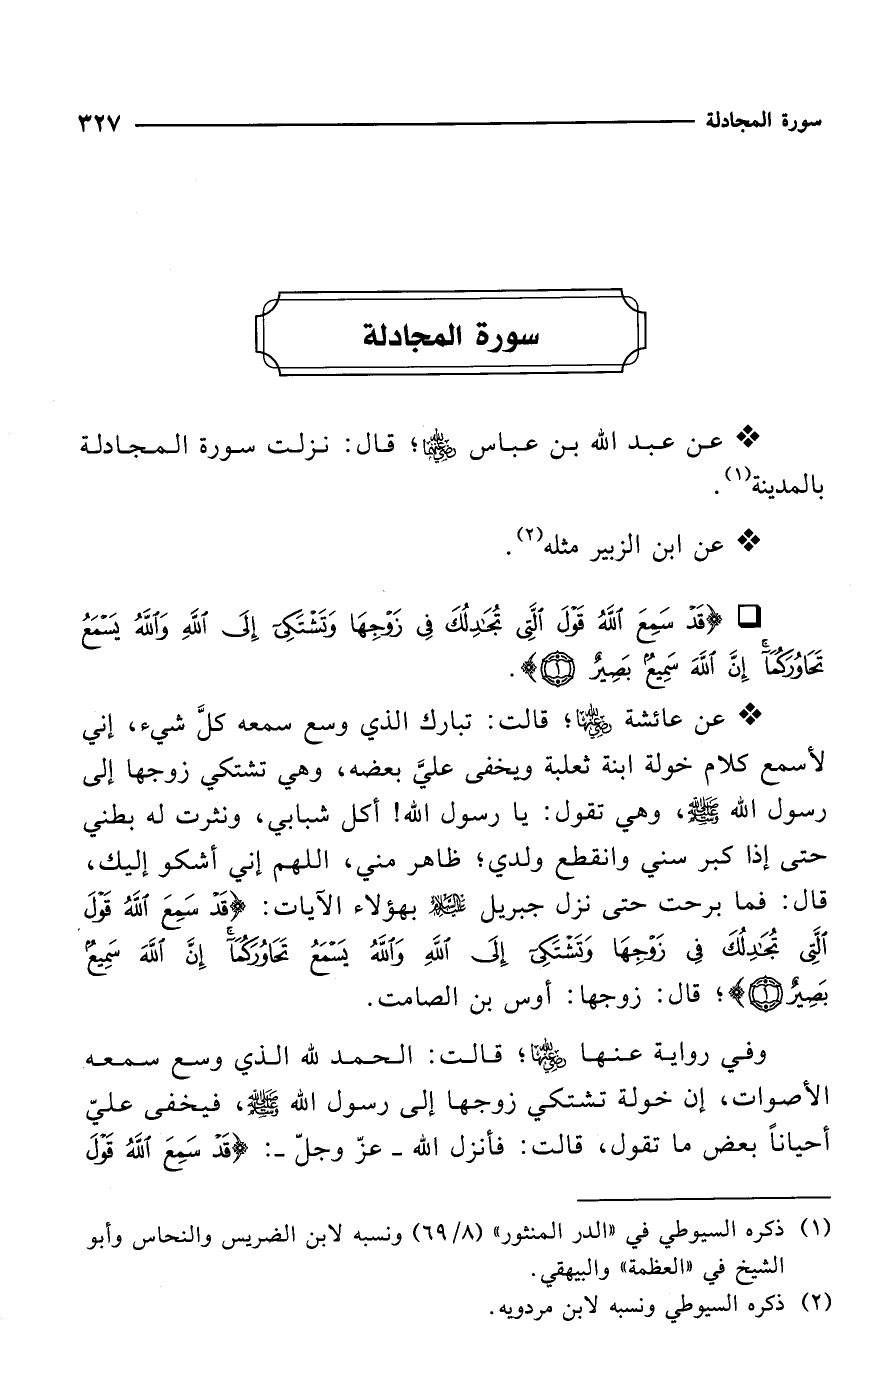 سورة المجادلة ٣٢٧
سورة المجادلة
❖ عن عبد الله بن عباس رضي الله عنهما؛ قال: نزلت سورة المجادلة
بالمدينة(١).
❖ عن ابن الزبير مثله(٢).
❑ ﴿قَدْ سَمِعَ ٱللَّهُ قَوْلَ ٱلَّتِى تُجَـٰدِلُكَ فِى زَوْجِهَا وَتَشْتَكِىٓ إِلَى ٱللَّهِ وَٱللَّهُ يَسْمَعُ
تَحَاوُرَكُمَآ ۚ إِنَّ ٱللَّهَ سَمِيعٌۢ بَصِيرٌ ١﴾.
❖ عن عائشة رضي الله عنها؛ قالت: تبارك الذي وسع سمعه كلَّ شيء، إني
لأسمع كلام خولة ابنة ثعلبة ويخفى عليَّ بعضه، وهي تشتكي زوجها إلى
رسول الله ﷺ، وهي تقول: يا رسول الله! أكل شبابي، ونثرت له بطني
حتى إذا كبر سني وانقطع ولدي؛ ظاهر مني، اللهم إني أشكو إليك،
قال: فما برحت حتى نزل جبريل عليه السلام بهؤلاء الآيات: ﴿قَدْ سَمِعَ ٱللَّهُ قَوْلَ
ٱلَّتِى تُجَـٰدِلُكَ فِى زَوْجِهَا وَتَشْتَكِىٓ إِلَى ٱللَّهِ وَٱللَّهُ يَسْمَعُ تَحَاوُرَكُمَآ ۚ إِنَّ ٱللَّهَ سَمِيعٌۢ
بَصِيرٌ ١﴾؛ قال: زوجها: أوس بن الصامت.
وفي رواية عنها رضي الله عنها؛ قالت: الحمد لله الذي وسع سمعه
الأصوات، إن خولة تشتكي زوجها إلى رسول الله ﷺ، فيخفى عليّ
أحياناً بعض ما تقول، قالت: فأنزل الله ـ عزّ وجلّ ـ: ﴿قَدْ سَمِعَ ٱللَّهُ قَوْلَ
(١) ذكره السيوطي في «الدر المنثور» (٨/ ٦٩) ونسبه لابن الضريس والنحاس وأبو
الشيخ في «العظمة» والبيهقي.
(٢) ذكره السيوطي ونسبه لابن مردويه.